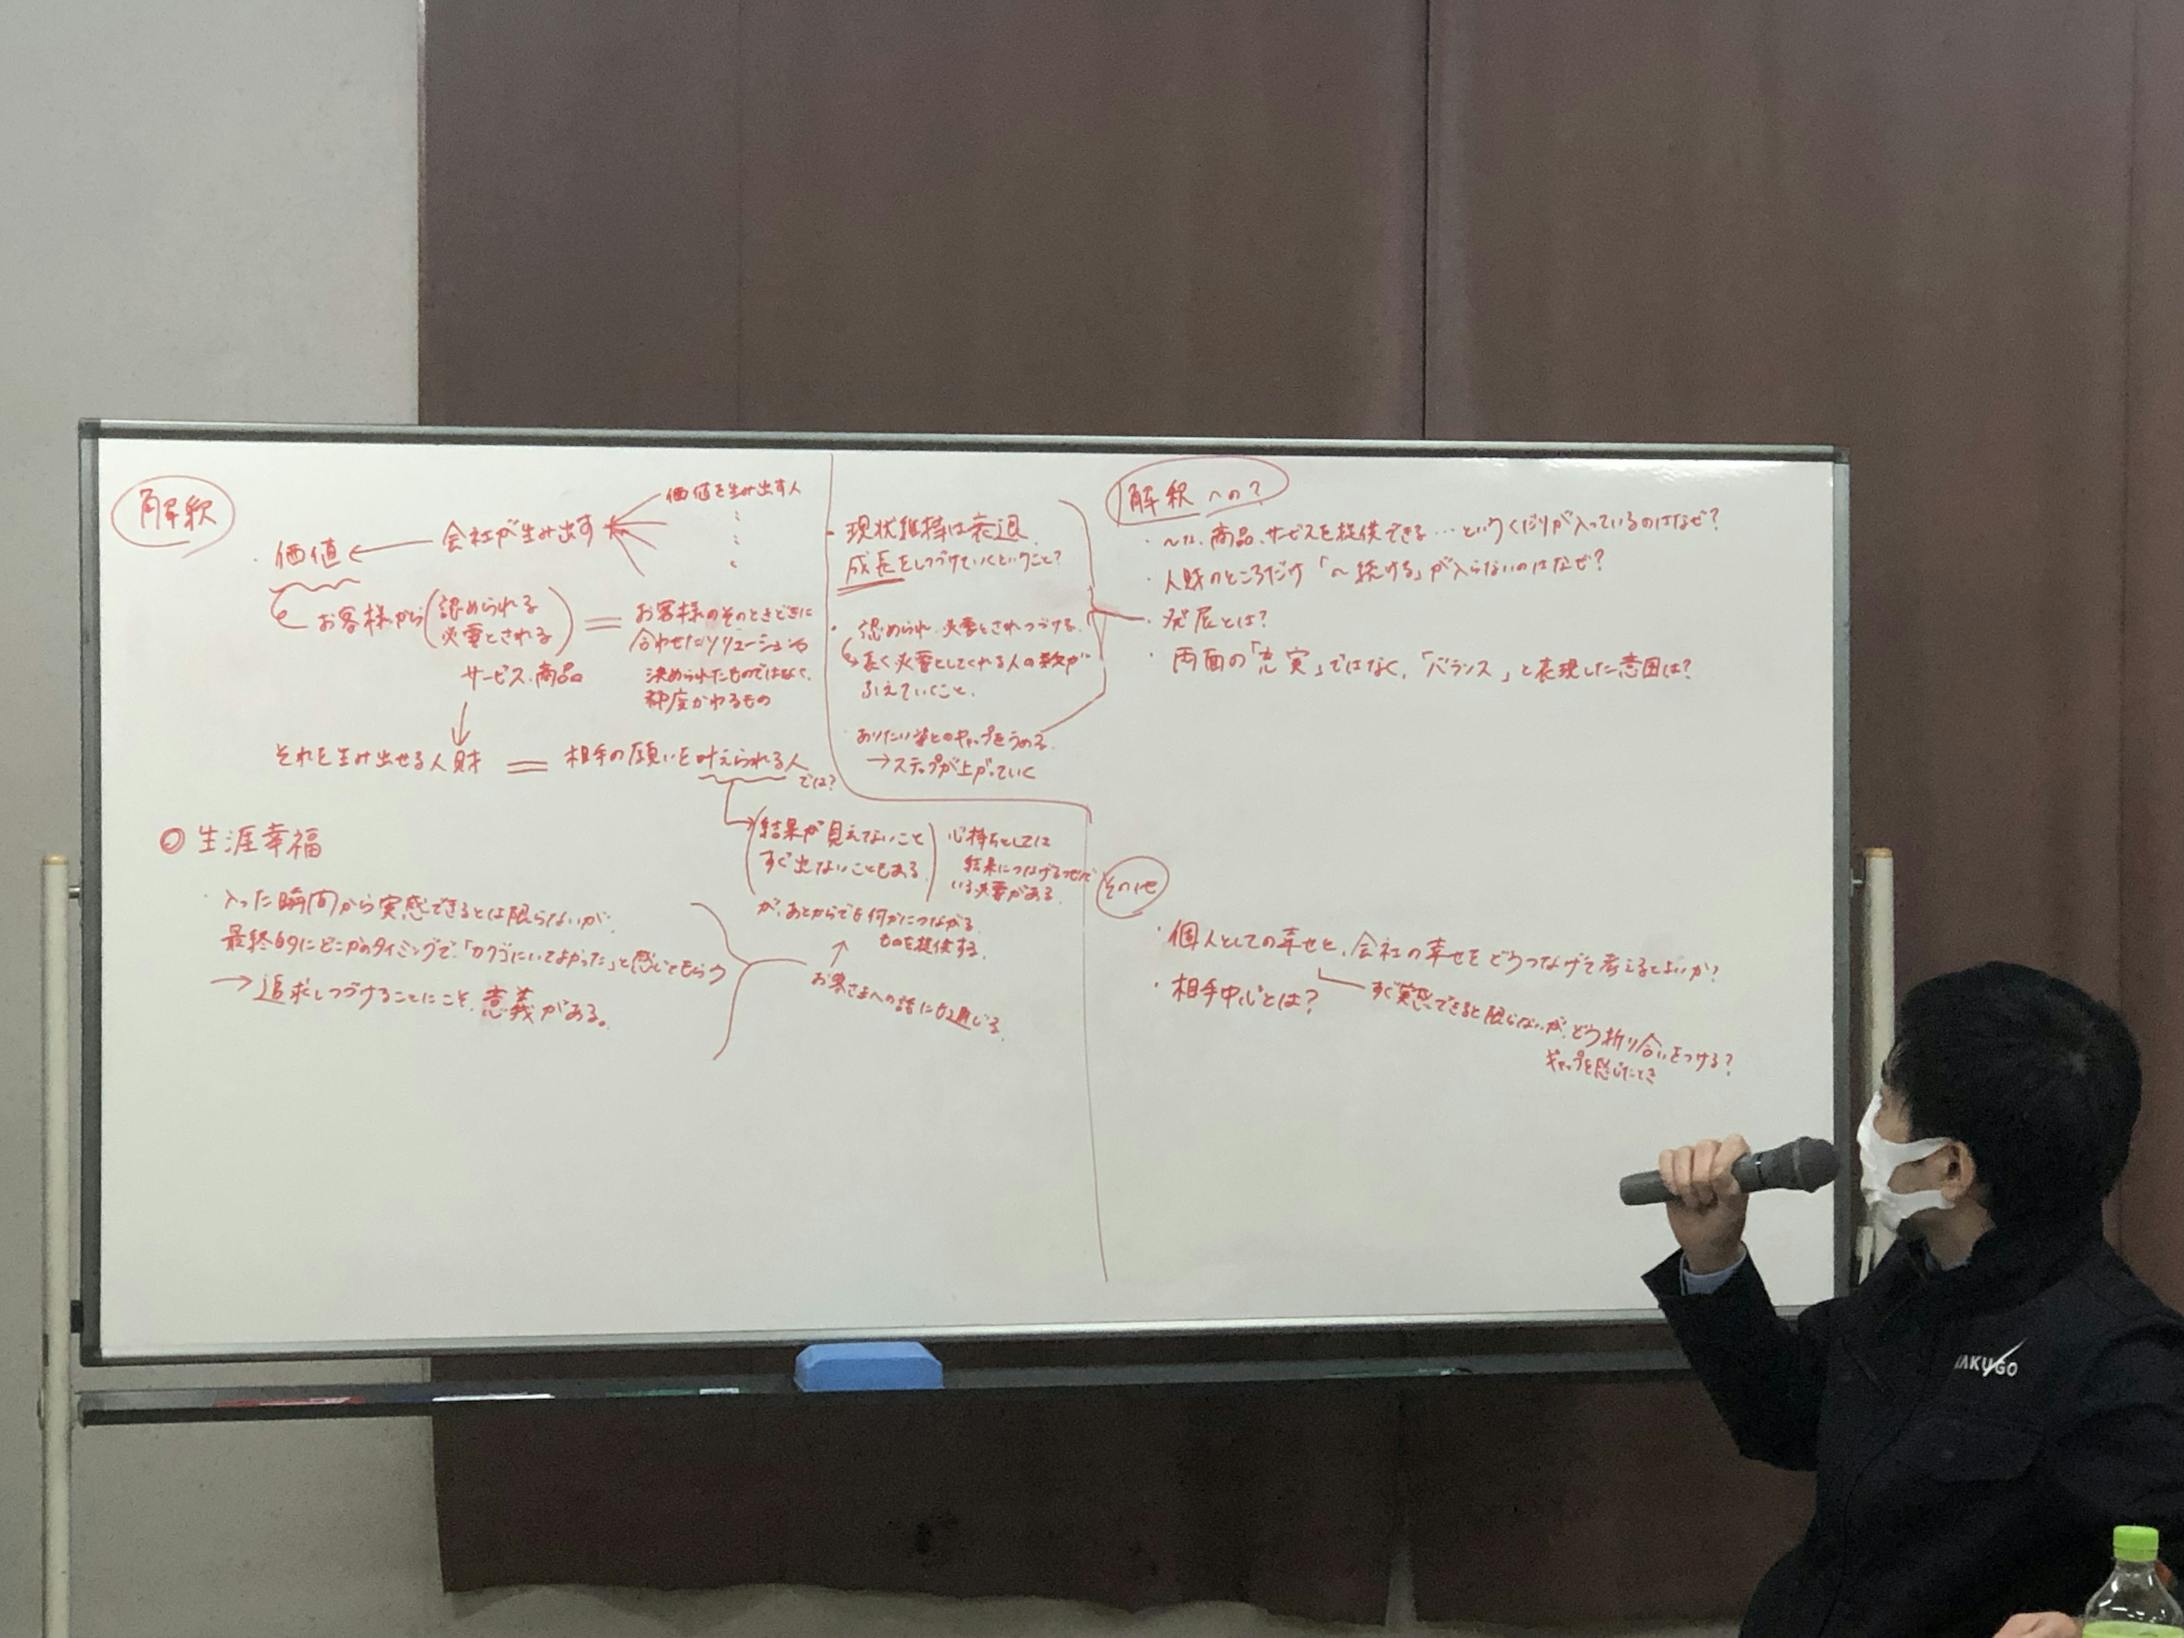 解釈
価値を生み出す人
・価値 ← 会社が生み出す
お客様から(認められる
必要とされる)
サービス、商品
= お客様のそのときどきに
合わせたソリューション
決められたものではなく、
都度かわるもの
それを生み出せる人財 = 相手の願いを叶えられる人
では?
結果が見えてないこと
すぐ出ないこともある
心持ちとしては
結果につなげるつもりで
いる必要がある
が、あとからでも何かにつながる
ものを提供する。
お客さまへの話にも通じる
◎ 生涯幸福
・入った瞬間から実感できるとは限らないが、
最終的にどこかのタイミングで、「カクゴにいてよかった」と感じてもらう
→ 追求しつづけることにこそ、意義がある。
・現状維持は衰退
成長をしつづけていくということ?
・認められ、必要とされつづける
長く必要としてくれる人の数が
ふえていくこと。
ありたい姿とのギャップをうめる
→ステップが上がっていく
解釈への?
・〜な、商品、サービスを提供できる…というくだりが入っているのはなぜ?
・人財のところだけ「〜続ける」が入らないのはなぜ?
・発展とは?
・両面の「充実」ではなく、「バランス」と表現した意図は?
その他
・個人としての幸せと、会社の幸せをどうつなげて考えるとよいか?
すぐ実感できると限らないが、どう折り合いをつける?
ギャップを感じたとき
・相手中心とは?
AKUGO